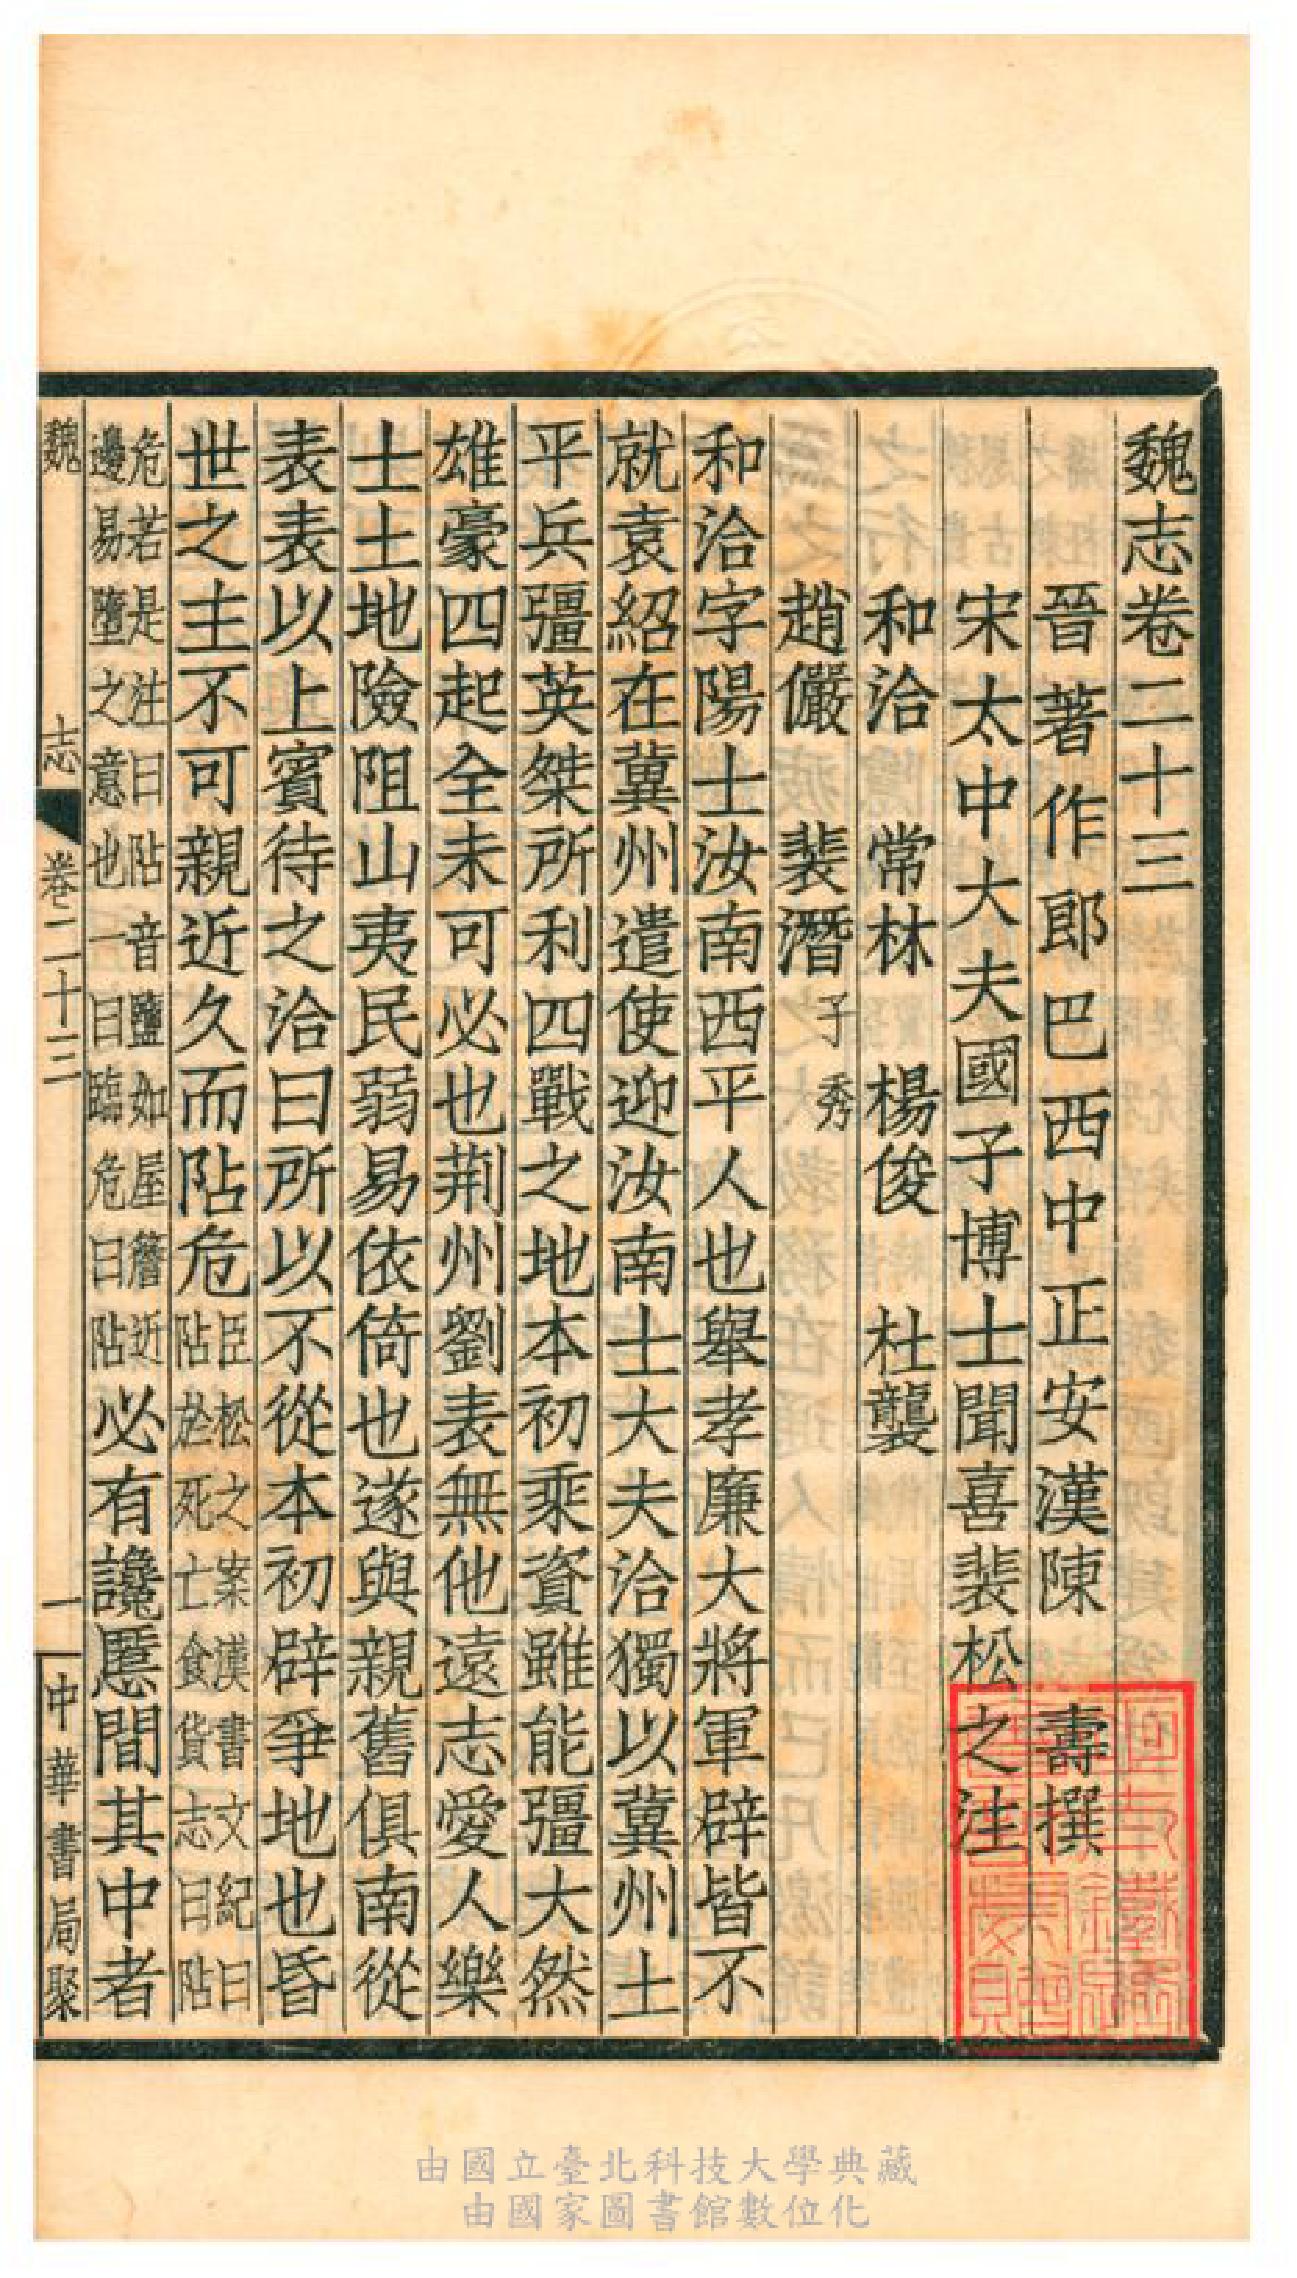 魏志卷二十三
晉著作郎巴西中正安漢陳壽撰
宋太中大夫國子博士聞喜裴松之注
和洽 常林 楊俊 杜襲
趙儼 裴潛子秀
和洽字陽士汝南西平人也舉孝廉大將軍辟皆不
就袁紹在冀州遣使迎汝南士大夫洽獨以冀州土
平兵彊英桀所利四戰之地本初乘資雖能彊大然
雄豪四起全未可必也荆州劉表無他遠志愛人樂
士土地險阻山夷民弱易依倚也遂與親舊俱南從
表表以上賓待之洽曰所以不從本初辟爭地也昏
世之主不可親近久而阽危臣松之案漢書文紀曰阽於死亡食貨志曰阽
危若是注曰阽音鹽如屋簷近邊易墮之意也一曰臨危曰阽必有讒慝間其中者
魏志 卷二十三 一 中華書局聚
由國立臺北科技大學典藏
由國家圖書館數位化